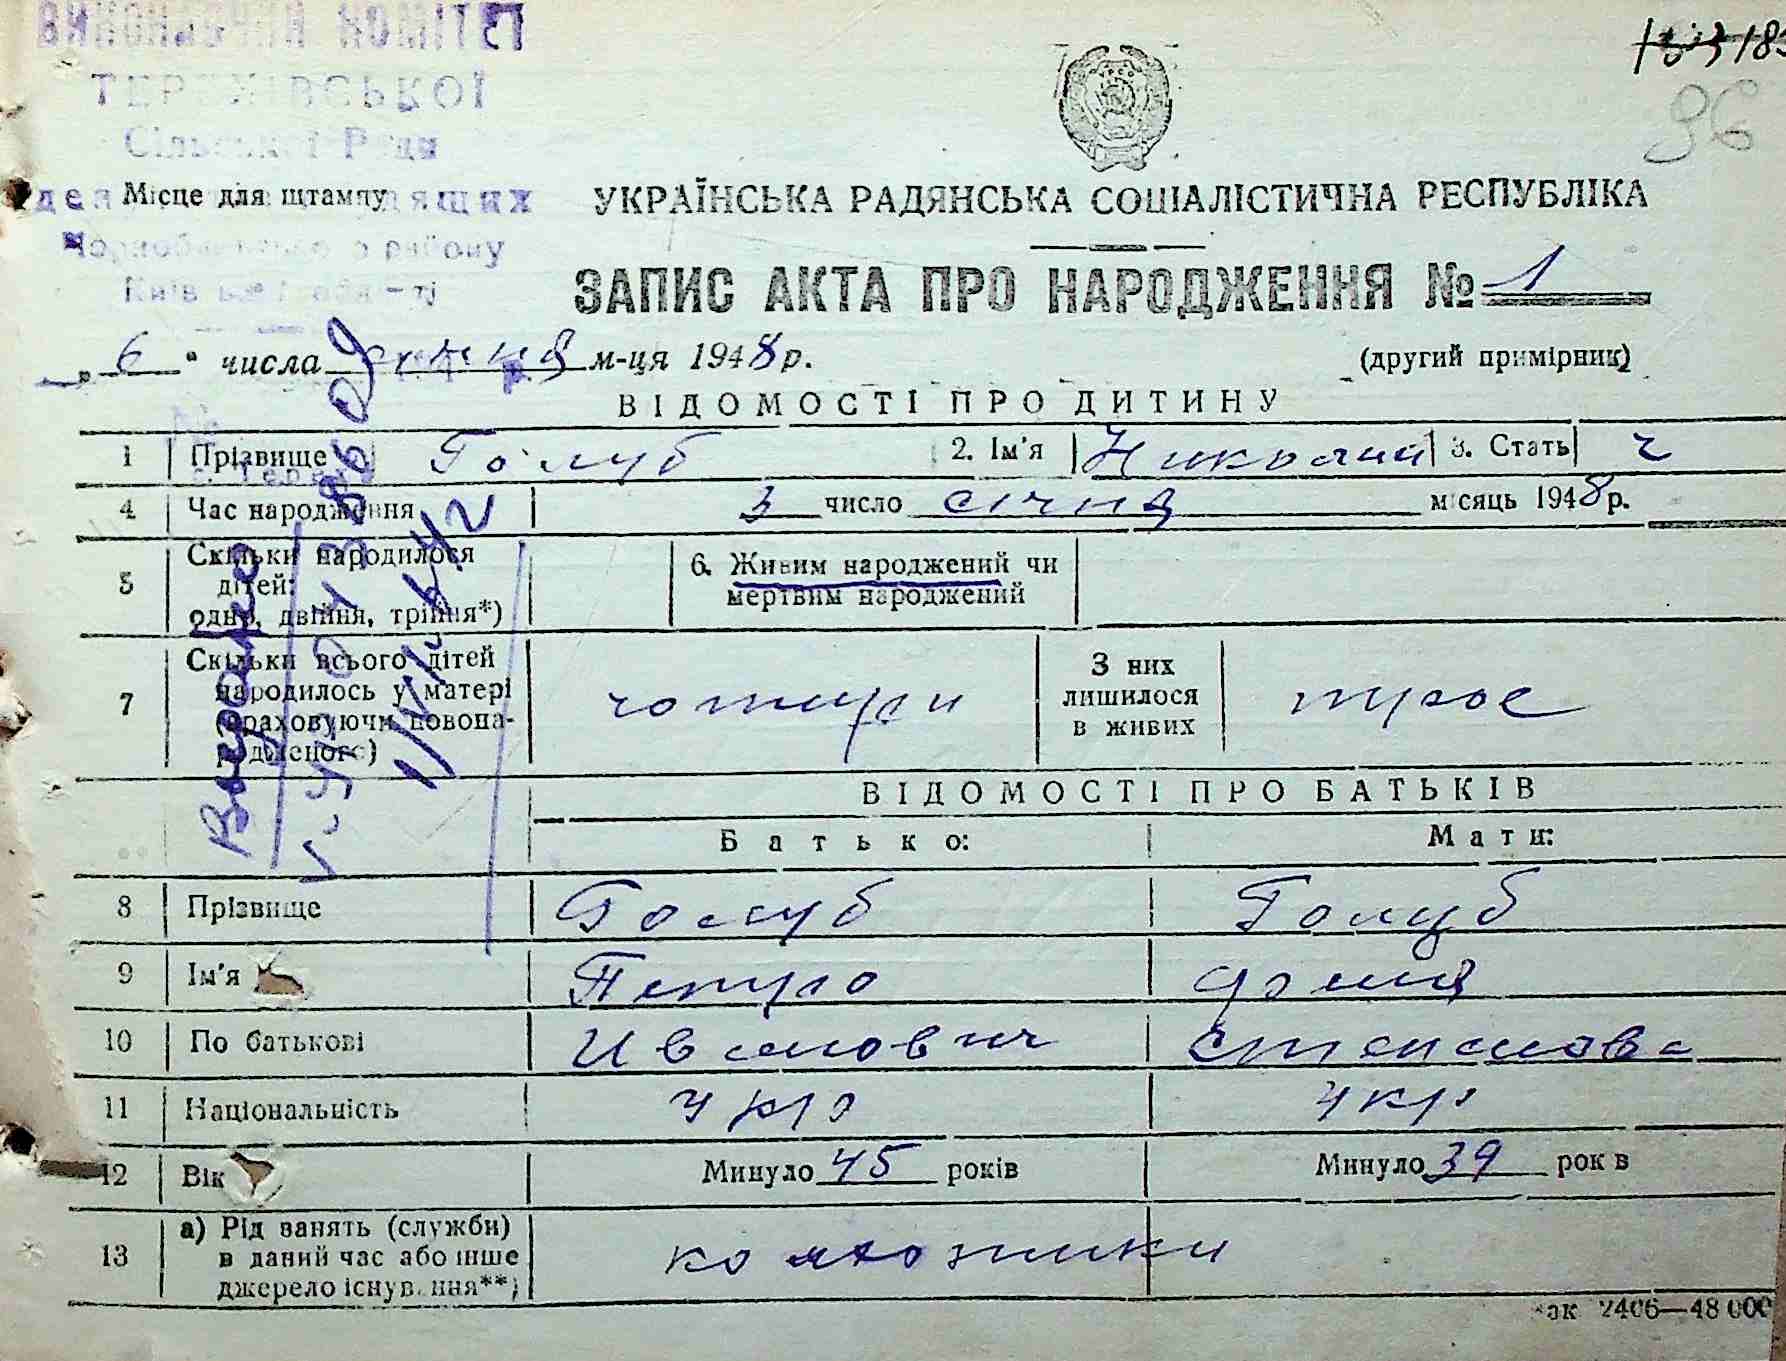 ВИКОНАВЧИЙ КОМІТЕТ
ТЕРЕХІВСЬКОЇ
Сільської Ради
депутатів трудящих
Чорнобильського району
Київської області
183 183
96
Місце для штампу
УКРАЇНСЬКА РАДЯНСЬКА СОЦІАЛІСТИЧНА РЕСПУБЛІКА
ЗАПИС АКТА ПРО НАРОДЖЕННЯ № 1
„ 6 “ числа січня м-ця 1948 р. (другий примірник)
ВІДОМОСТІ ПРО ДИТИНУ
1 Прізвище Голуб 2. Ім'я Николай 3. Стать ч
4 Час народження 3 число січня місяць 1948 р.
5 Скільки народилося дітей: одно, двійня, трійня*) 6. Живим народжений чи мертвим народжений
7 Скільки всього дітей народилось у матері (враховуючи новонародженого) чотири З них лишилося в живих троє
ВІДОМОСТІ ПРО БАТЬКІВ
Батько: Мати:
8 Прізвище Голуб Голуб
9 Ім'я Петро
10 По батькові Иванович Степановна
11 Національність укр укр
12 Вік Минуло 45 років Минуло 39 років
13 а) Рід занять (служби) в даний час або інше джерело існування**) колхозники
Зак 2406—48 000